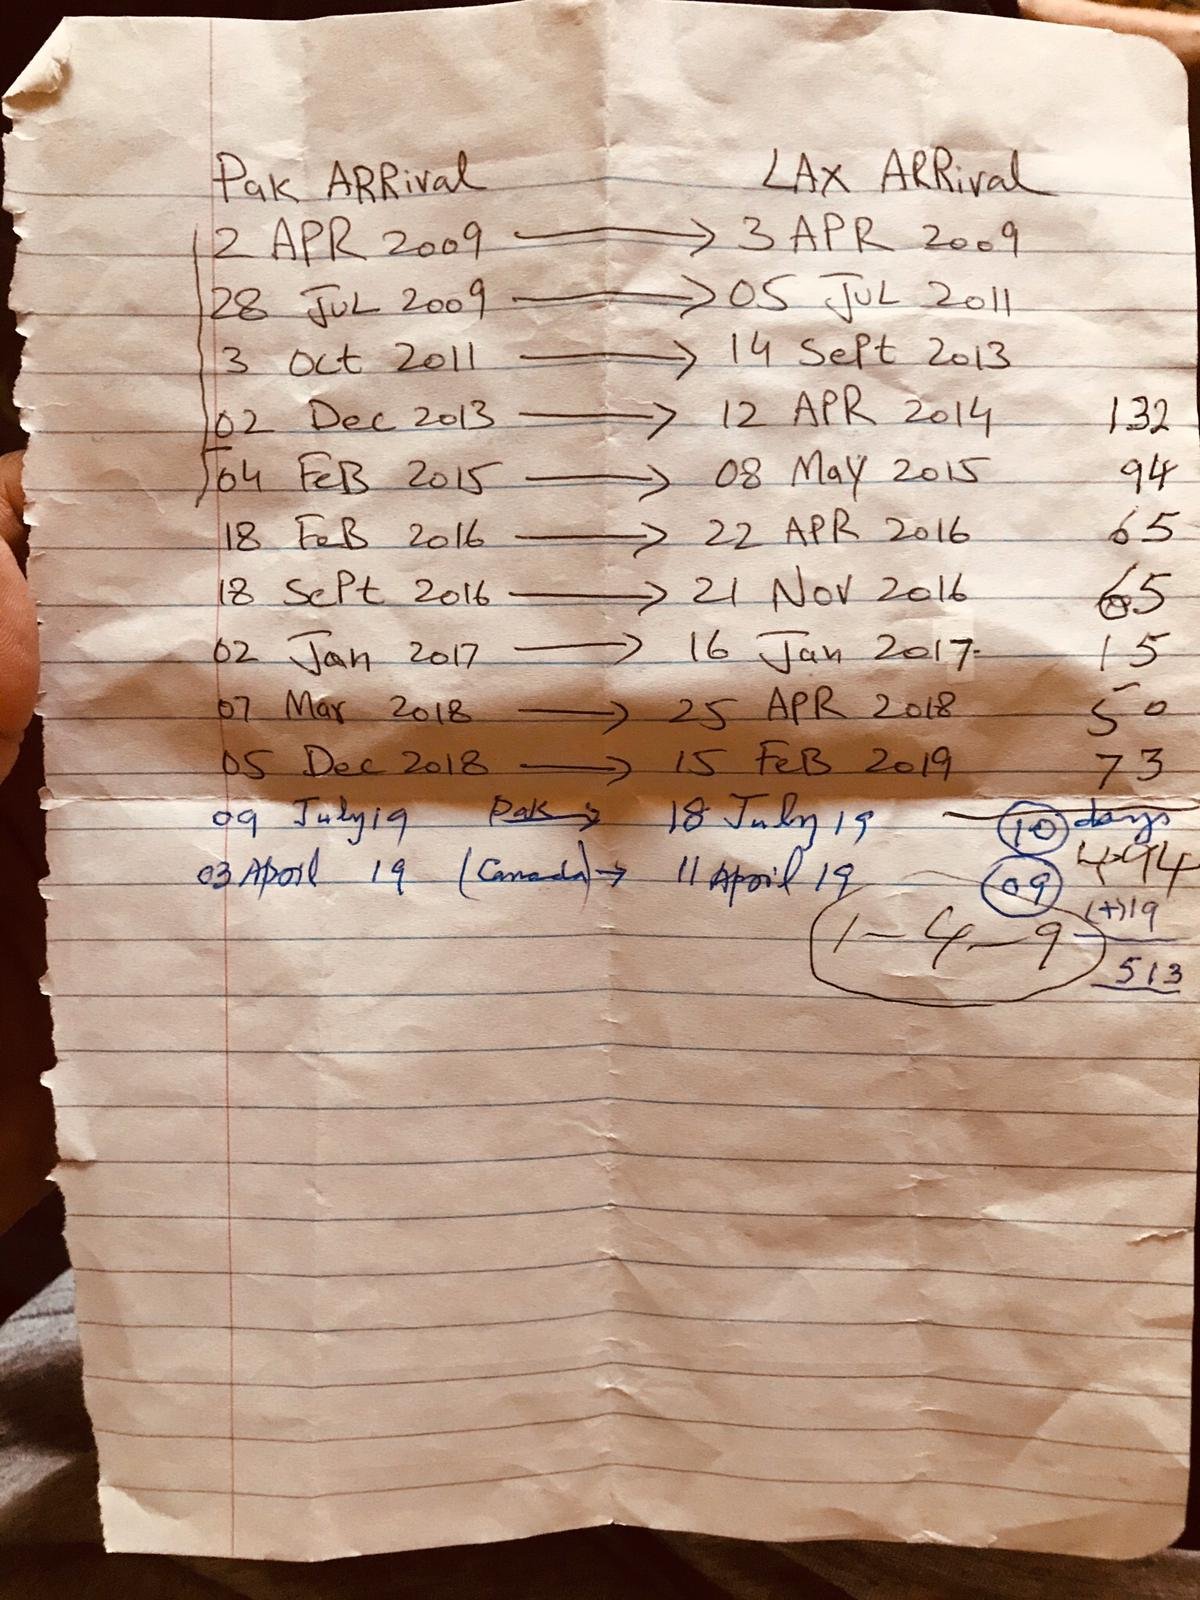 Pak ARRival LAX ARRival
2 APR 2009 → 3 APR 2009
28 JUL 2009 → 05 JUL 2011
3 Oct 2011 → 14 Sept 2013
02 Dec 2013 → 12 APR 2014 132
04 FeB 2015 → 08 May 2015 94
18 FeB 2016 → 22 APR 2016 65
18 Sept 2016 → 21 Nov 2016 65
02 Jan 2017 → 16 Jan 2017 15
07 Mar 2018 → 25 APR 2018 50
05 Dec 2018 → 15 FeB 2019 73
09 July 19 Pak → 18 July 19 — 10 days
494
03 April 19 (Canada) → 11 April 19 09
(+)19
1-4-9
513